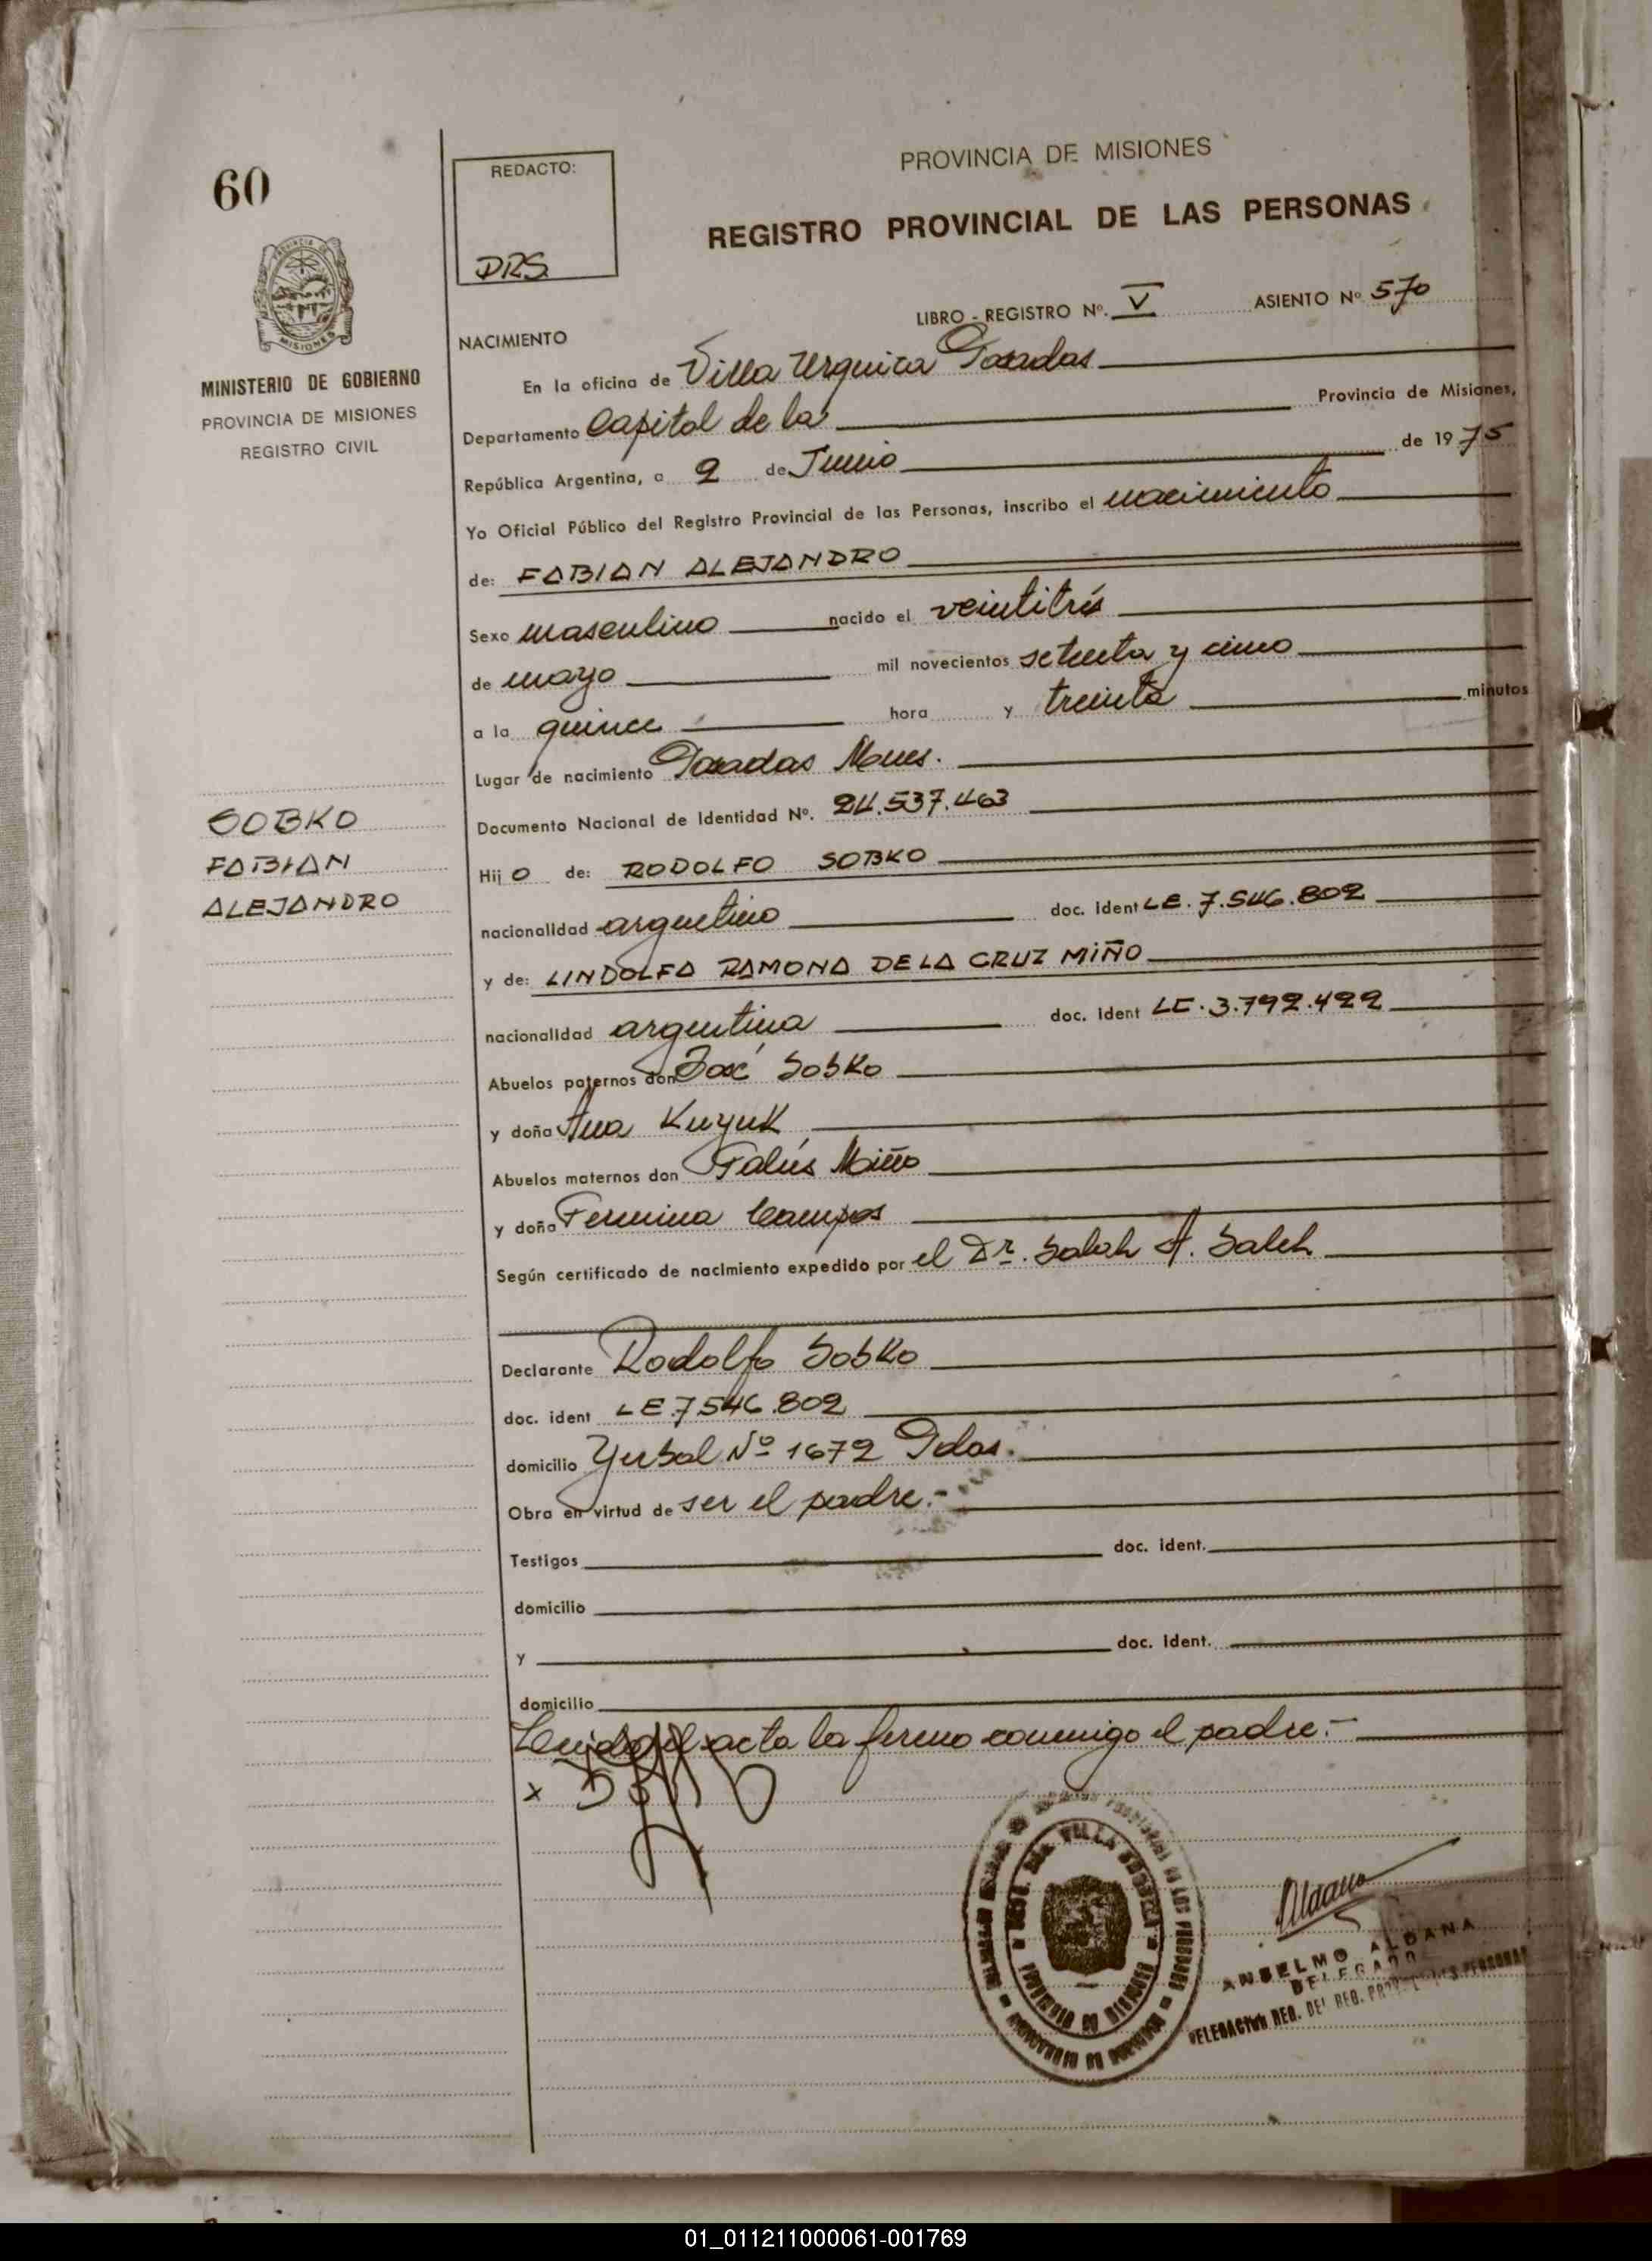 60
PROVINCIA DE MISIONES
MINISTERIO DE GOBIERNO
PROVINCIA DE MISIONES
REGISTRO CIVIL
SOBKO
FABIAN
ALEJANDRO
REDACTO:
DRS
PROVINCIA DE MISIONES
REGISTRO PROVINCIAL DE LAS PERSONAS
LIBRO - REGISTRO Nº. V ASIENTO Nº 570
NACIMIENTO
En la oficina de Villa Urquiza Posadas
Departamento Capital de la Provincia de Misiones,
República Argentina, a 2 de Junio de 1975
Yo Oficial Público del Registro Provincial de las Personas, inscribo el nacimiento
de: FABIAN ALEJANDRO
Sexo masculino nacido el veintitrés
de mayo mil novecientos setenta y cinco
a la quince hora y treinta minutos
Lugar de nacimiento Posadas Mnes.
Documento Nacional de Identidad Nº. 24.537.463
Hijo de: RODOLFO SOBKO
nacionalidad argentino doc. ident LE. 7.546.802
y de: LINDOLFA RAMONA DE LA CRUZ MIÑO
nacionalidad argentina doc. ident LC. 3.792.422
Abuelos paternos don José Sobko
y doña Ana Kuzuk
Abuelos maternos don Miño
y doña Fermina Campos
Según certificado de nacimiento expedido por el Dr. Salah A. Saleh
Declarante Rodolfo Sobko
doc. ident LE.7546.802
domicilio Yerbal Nº 1672 Pdas.
Obra en virtud de ser el padre.-
Testigos doc. ident.
domicilio
y doc. ident.
domicilio
Leida el acta la firma conmigo el padre.-
x
PROVINCIA DE MISIONES
Aldana
ANSELMO ALDANA
DELEGADO
DELEGACION REG. DEL REG. PROV. DE LAS PERSONAS
01_011211000061-001769